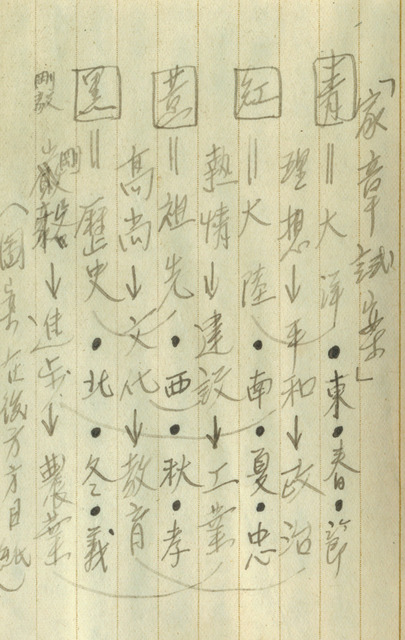 「家章試案」
青＝大洋・東・春・節
理想→平和→政治
紅＝大陸・南・夏・忠
熱情→建設→工業
黄＝祖先・西・秋・孝
高尚→文化→教育
黒＝歷史・北・冬・義
剛毅 嚴肅 剛毅→進步→農業
（圖案在後方方目紙）